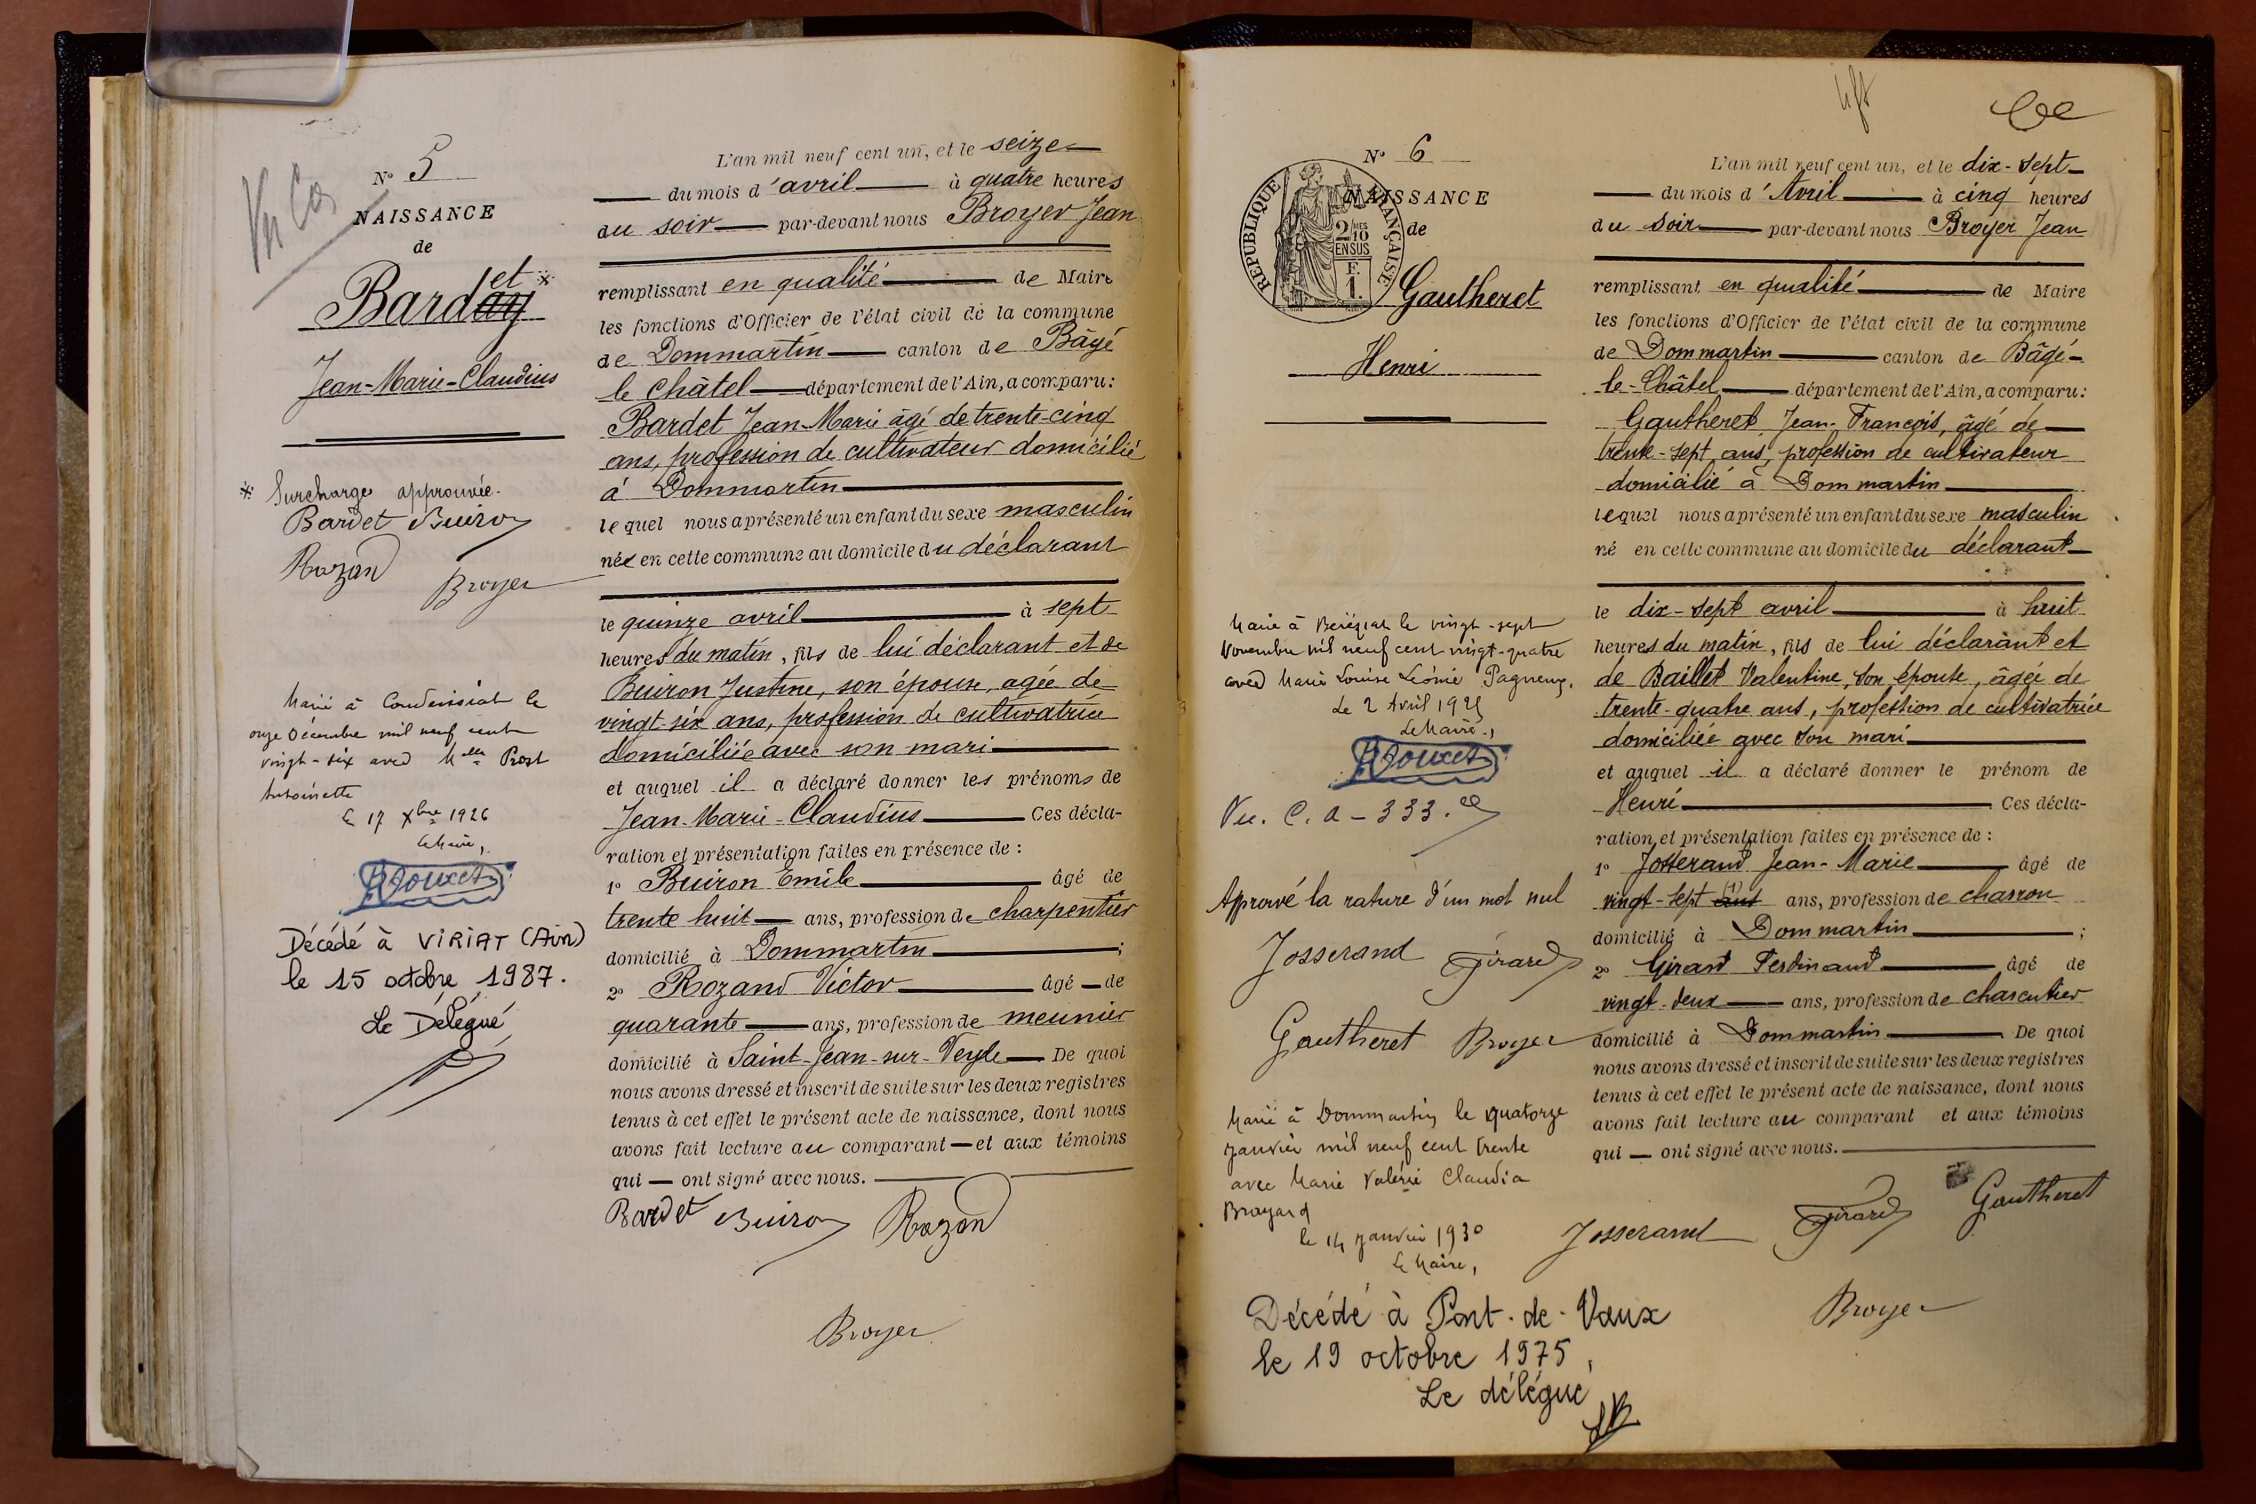 N° 5
NAISSANCE
de
Bardet *
Jean-Marie-Claudius
* Surcharge approuvée.
Bardet Buiron
Rozand
Broyer
Marié à Condeissiat le
onze Décembre mil neuf cent
vingt-six avec Melle Prost
Antoinette
le 17 Xbre 1926
Le Maire,
Doucet
Décédé à VIRIAT (Ain)
le 15 octobre 1987.
Le Délégué
L'an mil neuf cent un, et le seize
du mois d'avril à quatre heures
du soir par-devant nous Broyer Jean
remplissant en qualité de Maire
les fonctions d'Officier de l'état civil de la commune
de Dommartin canton de Bâgé
le Châtel département de l'Ain, a comparu:
Bardet Jean-Marie âgé de trente-cinq
ans, profession de cultivateur domicilié
à Dommartin
lequel nous a présenté un enfant du sexe masculin
née en cette commune au domicile du déclarant
le quinze avril à sept
heures du matin, fils de lui déclarant et de
Buiron Justine, son épouse, agée de
vingt-six ans, profession de cultivatrice
domiciliée avec son mari
et auquel il a déclaré donner les prénoms de
Jean-Marie-Claudius Ces décla-
ration et présentation faites en présence de :
1° Buiron Emile âgé de
trente huit ans, profession de charpentier
domicilié à Dommartin ;
2° Rozand Victor âgé de
quarante ans, profession de meunier
domicilié à Saint-Jean-sur-Veyle De quoi
nous avons dressé et inscrit de suite sur les deux registres
tenus à cet effet le présent acte de naissance, dont nous
avons fait lecture au comparant et aux témoins
qui ont signé avec nous.
Bardet Buiron Rozand
Broyer
N° 6
NAISSANCE
de
RÉPUBLIQUE FRANÇAISE
2/10 MES
EN SUS
F.
1.
Gautheret
Henri
Marié à Béréziat le vingt-sept
Novembre mil neuf cent vingt-quatre
avec Marie Louise Léonie Pagneux.
Le 2 Avril 1925
Le Maire,
Doucet
Vu. C. a - 333.
Approuvé la rature d'un mot nul
Josserand Girard
Gautheret Broyer
Marié à Dommartin le quatorze
janvier mil neuf cent trente
avec Marie Valérie Claudia
Brayard
le 14 janvier 1930
Le Maire,
Décédé à Pont-de-Vaux
le 19 octobre 1975,
Le délégué
L'an mil neuf cent un, et le dix-sept
du mois d'Avril à cinq heures
du soir par-devant nous Broyer Jean
remplissant en qualité de Maire
les fonctions d'Officier de l'état civil de la commune
de Dommartin canton de Bâgé-
le-Châtel département de l'Ain, a comparu:
Gautheret Jean-François, âgé de
trente-sept ans, profession de cultivateur
domicilié à Dommartin
lequel nous a présenté un enfant du sexe masculin
né en cette commune au domicile du déclarant
le dix-sept avril à huit
heures du matin, fils de lui déclarant et
de Baillet Valentine, son épouse, âgée de
trente-quatre ans, profession de cultivatrice
domiciliée avec son mari
et auquel il a déclaré donner le prénom de
Henri Ces décla-
ration et présentation faites en présence de :
1° Josserand Jean-Marie âgé de
vingt-sept (1) ans ans, profession de charron
domicilié à Dommartin ;
2° Girard Ferdinand âgé de
vingt-deux ans, profession de charcutier
domicilié à Dommartin De quoi
nous avons dressé et inscrit de suite sur les deux registres
tenus à cet effet le présent acte de naissance, dont nous
avons fait lecture au comparant et aux témoins
qui ont signé avec nous.
Josserand Girard Gautheret
Broyer